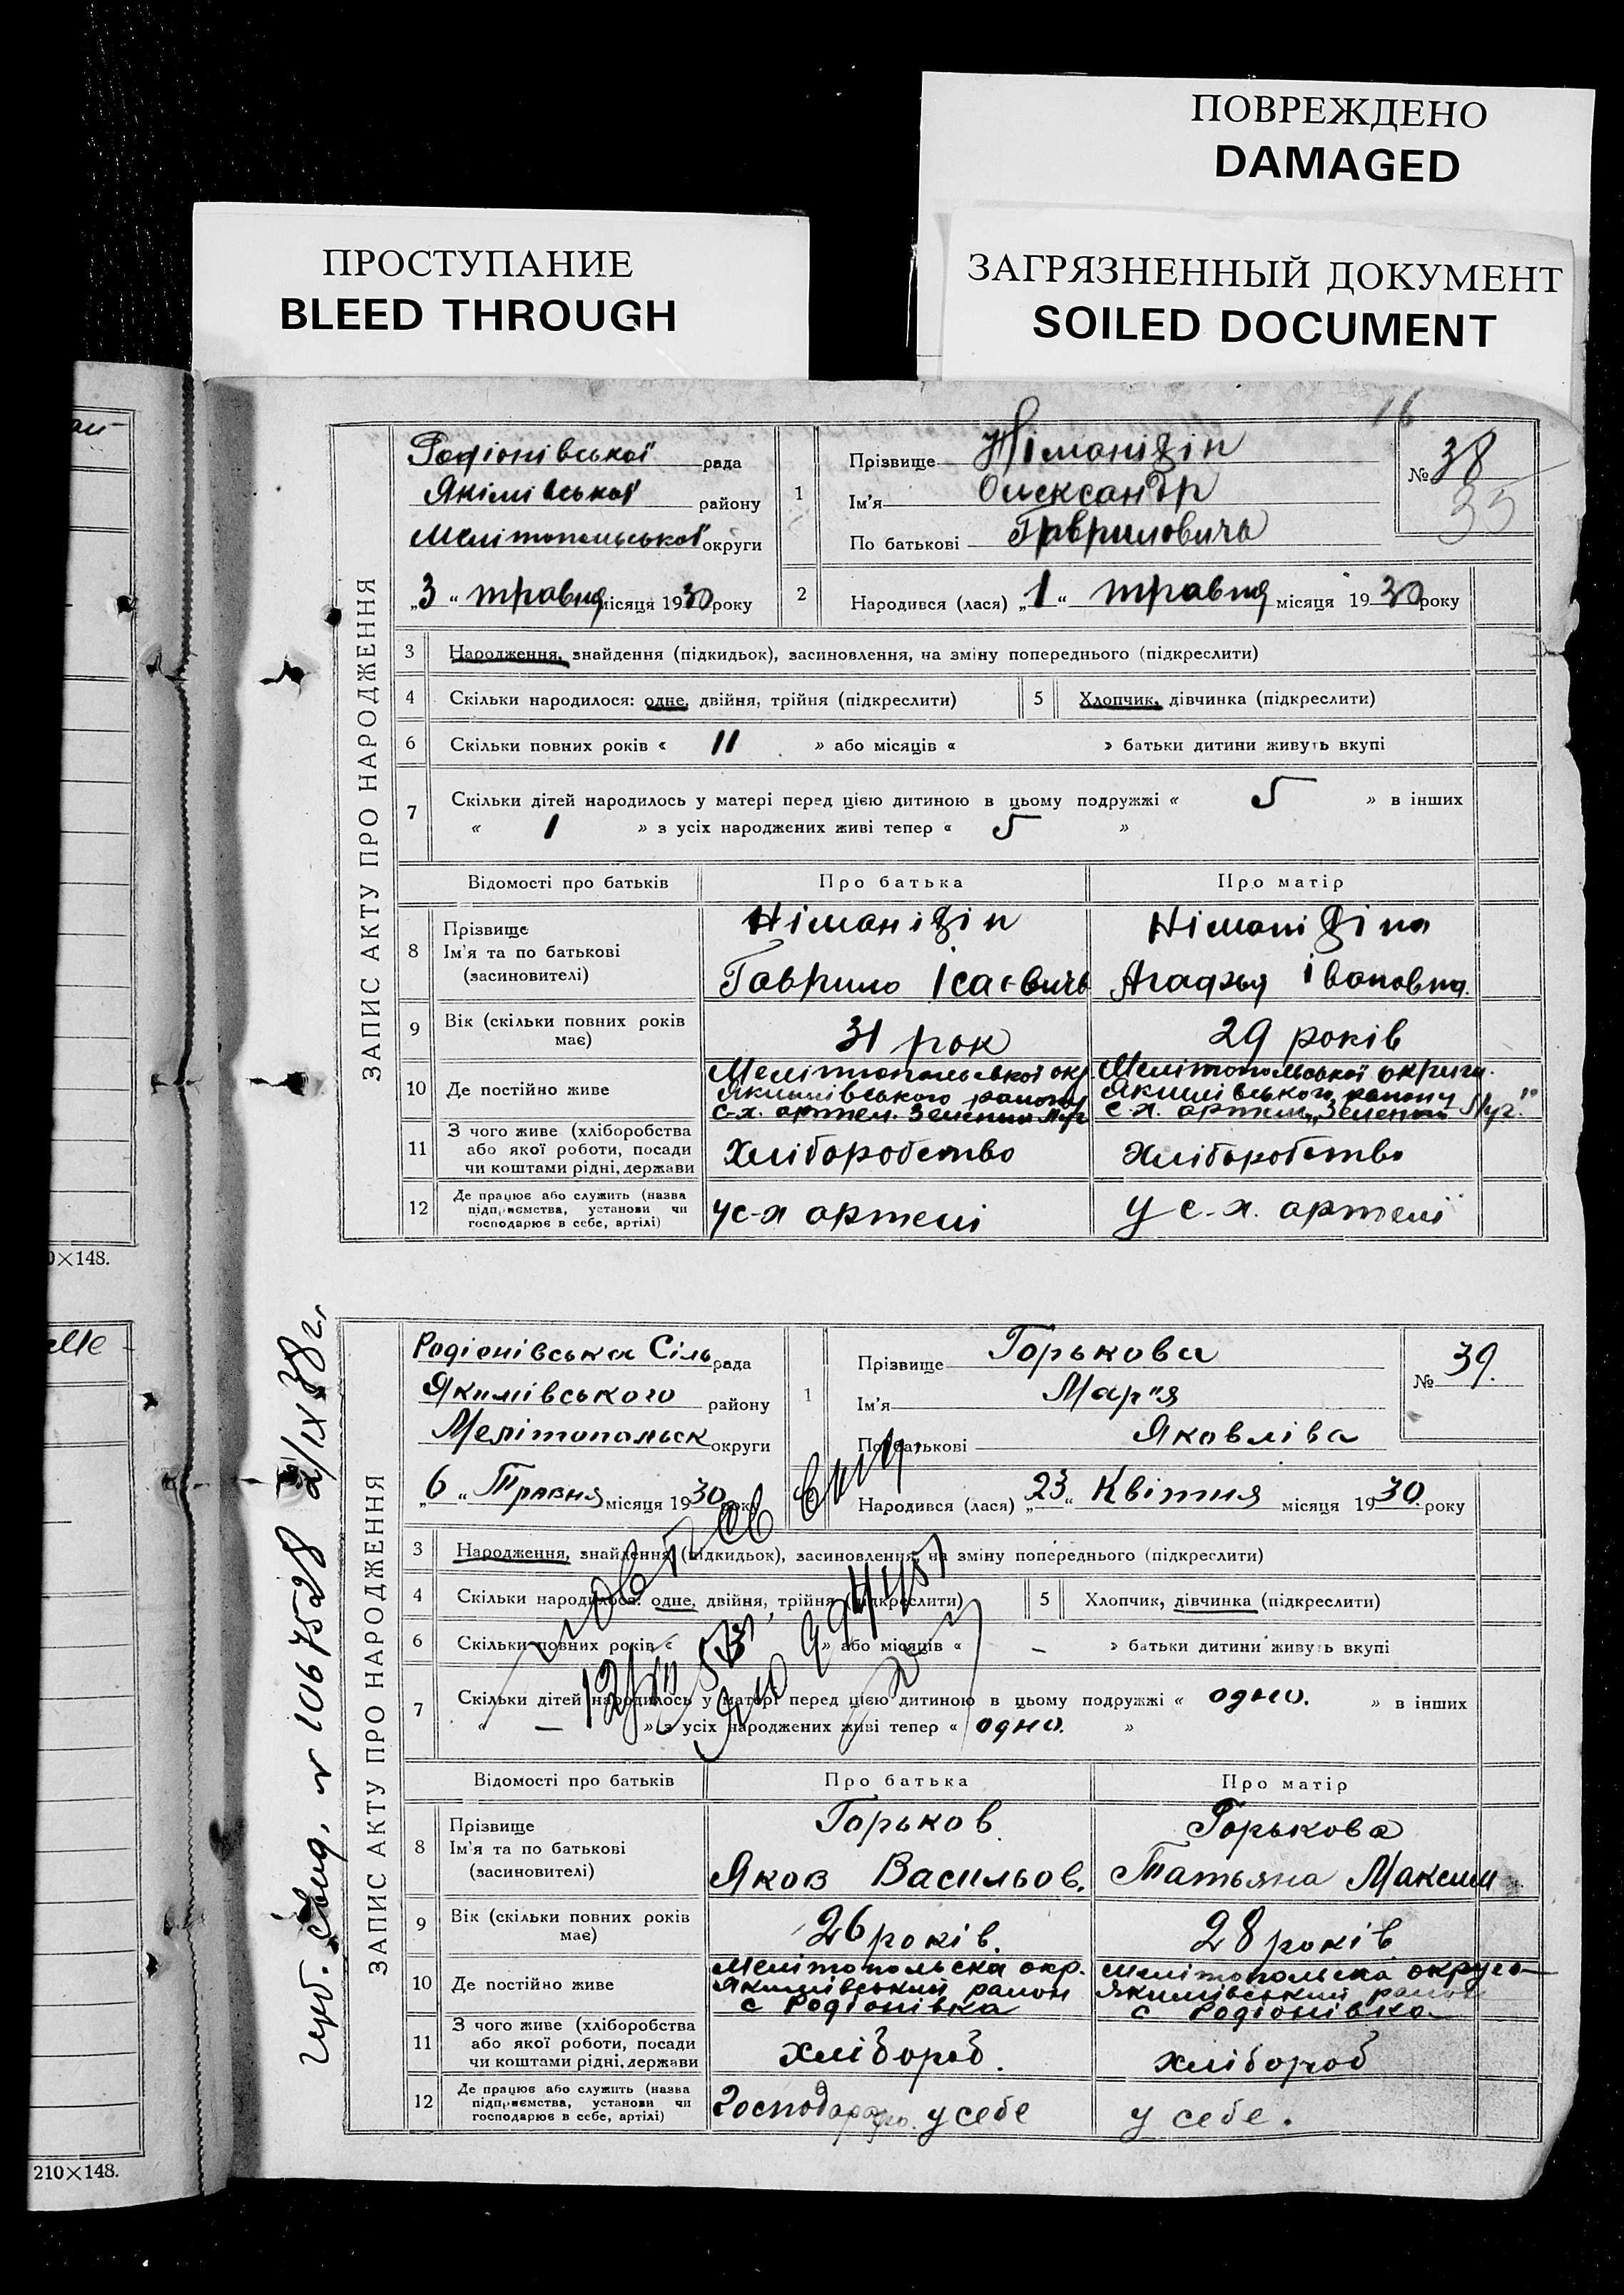 ПОВРЕЖДЕНО
DAMAGED
ПРОСТУПАНИЕ
BLEED THROUGH
ЗАГРЯЗНЕННЫЙ ДОКУМЕНТ
SOILED DOCUMENT
16
ЗАПИС АКТУ ПРО НАРОДЖЕННЯ
Родіонівської рада
Якімівської району
Мелітопольської округи
„3 “ травня місяця 1930 року
1
Прізвище
Ім'я Олександр
По батькові Гавриловичь
№ 38
35
2 Народився (лася) „1 “ травня місяця 1930 року
3 Народження, знайдення (підкидьок), засиновлення, на зміну попереднього (підкреслити)
4 Скільки народилося: одне, двійня, трійня (підкреслити) 5 Хлопчик, дівчинка (підкреслити)
6 Скільки повних років « 11 » або місяців « » батьки дитини живуть вкупі
7 Скільки дітей народилось у матері перед цією дитиною в цьому подружжі « 5 » в інших
« 1 » з усіх народжених живі тепер « 5 »
Відомості про батьків Про батька Про матір
8 Прізвище
Ім'я та по батькові
(засиновителі)
Гаврило Ісаєвичь Агафья Івановна.
9 Вік (скільки повних років має) 31 рок 29 років
10 Де постійно живе
Мелітопольської окр. Мелітопольської округи.
Якимівського району Якимівського району
с-х. артел. Зелений Луг с. х. артель „Зелений Луг“
11 З чого живе (хліборобства або якої роботи, посади чи коштами рідні, держави
Хліборобство Хліборобство
12 Де працює або служить (назва підприємства, установи чи господарює в себе, артілі)
у с-х артелі у с.-х. артелі
0×148.
ЗАПИС АКТУ ПРО НАРОДЖЕННЯ
Родіонівська Сіль рада
Якимівського району
Мелітопольск округи
„6 “ Травня місяця 1930 року
1
Прізвище Горькова
Ім'я Мар"я
По батькові Яковліва
№ 39.
Народився (лася) „23 “ Квітня місяця 1930. року
3 Народження, знайдення (підкидьок), засиновлення, на зміну попереднього (підкреслити)
4 Скільки народилося: одне, двійня, трійня (підкреслити) 5 Хлопчик, дівчинка (підкреслити)
6 Скільки повних років « » або місяців « – » батьки дитини живуть вкупі
7 Скільки дітей народилось у матері перед цією дитиною в цьому подружжі « одно. » в інших
« — » з усіх народжених живі тепер « одно. »
Відомості про батьків Про батька Про матір
8 Прізвище
Ім'я та по батькові
(засиновителі)
Горьков Горькова
Яков Васильов. Татьяна Максим
9 Вік (скільки повних років має) 26 років. 28 років
10 Де постійно живе
Мелітопольска окр. Мелітопольска округа
Якимівський район Якимівський район
с Родіонівка с Родіонівка
11 З чого живе (хліборобства або якої роботи, посади чи коштами рідні, держави
хлібороб. хлібороб
12 Де працює або служить (назва підприємства, установи чи господарює в себе, артілі)
у себе у себе.
свид. 1067528 2/IX 38 г.
210×148.